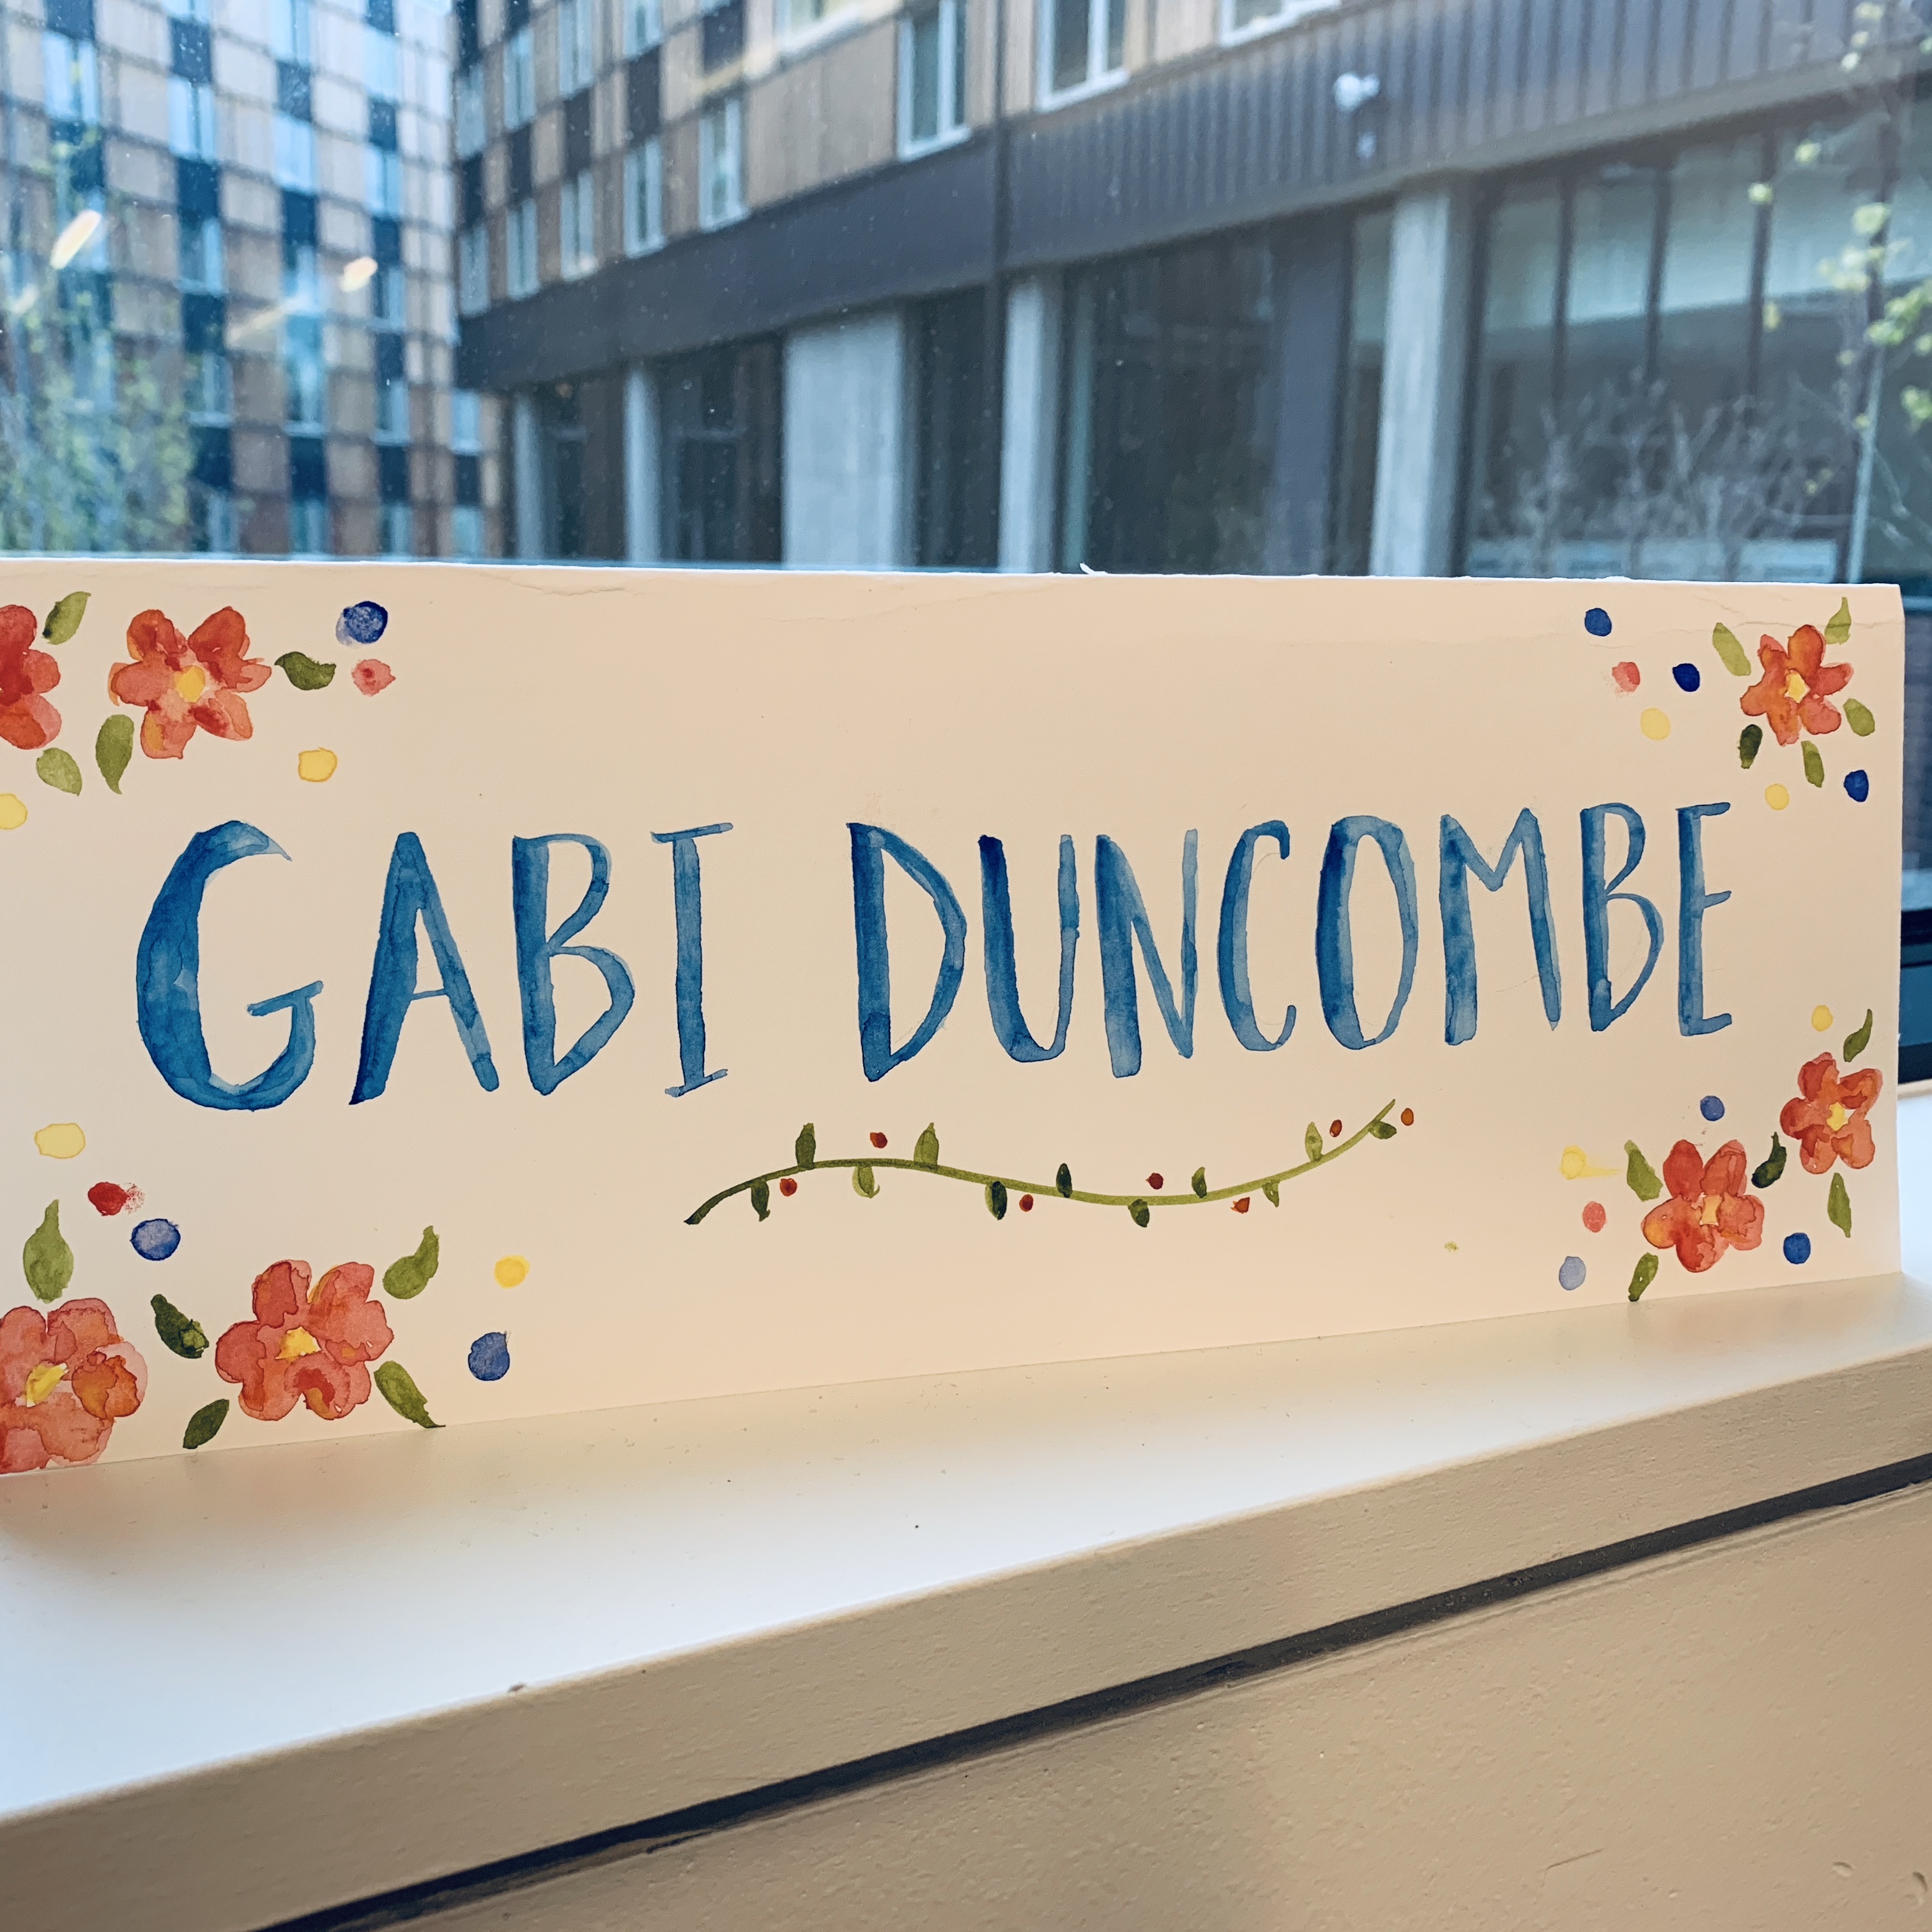 GABI DUNCOMBE